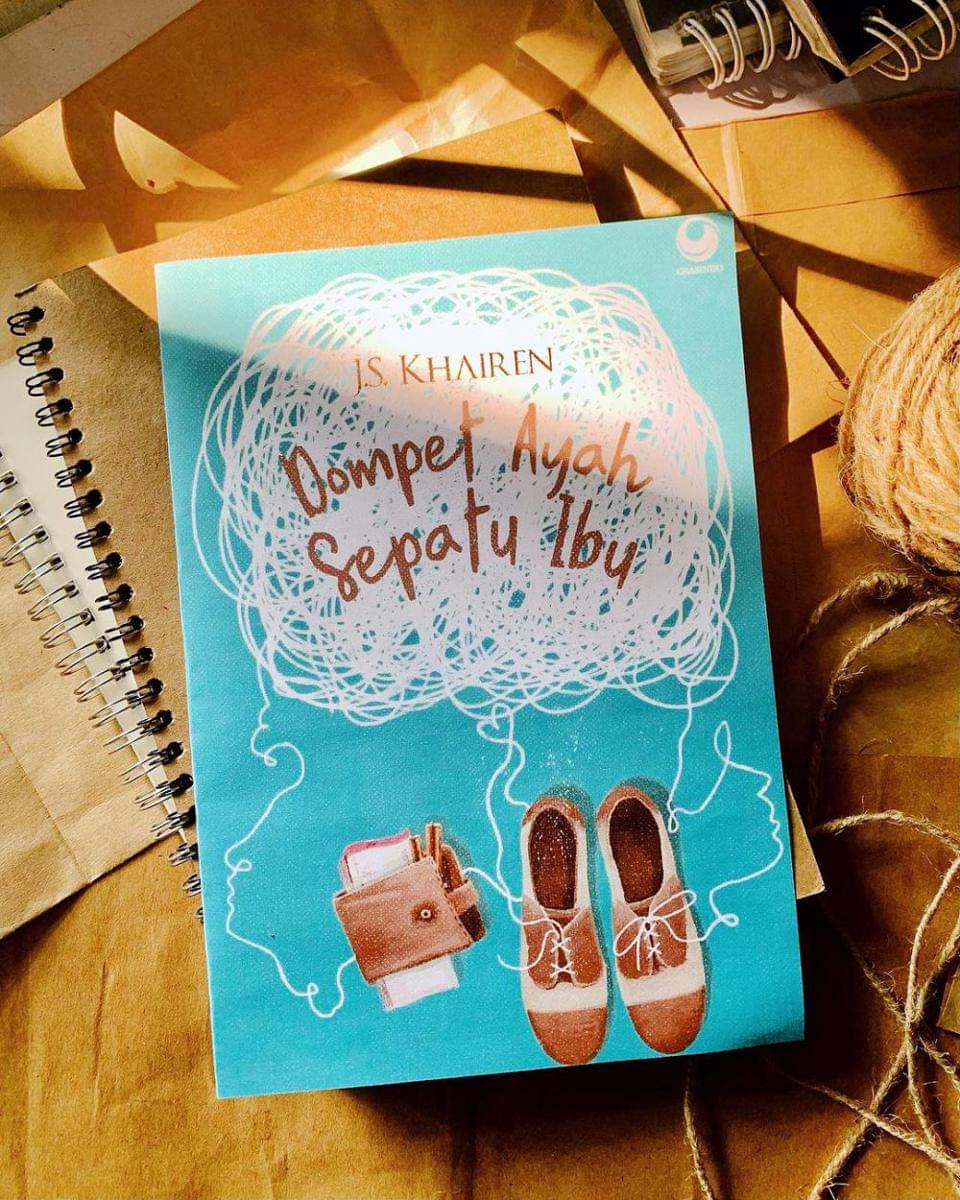 GRASINDO
J.S. KHAIREN
Dompet Ayah
Sepatu Ibu